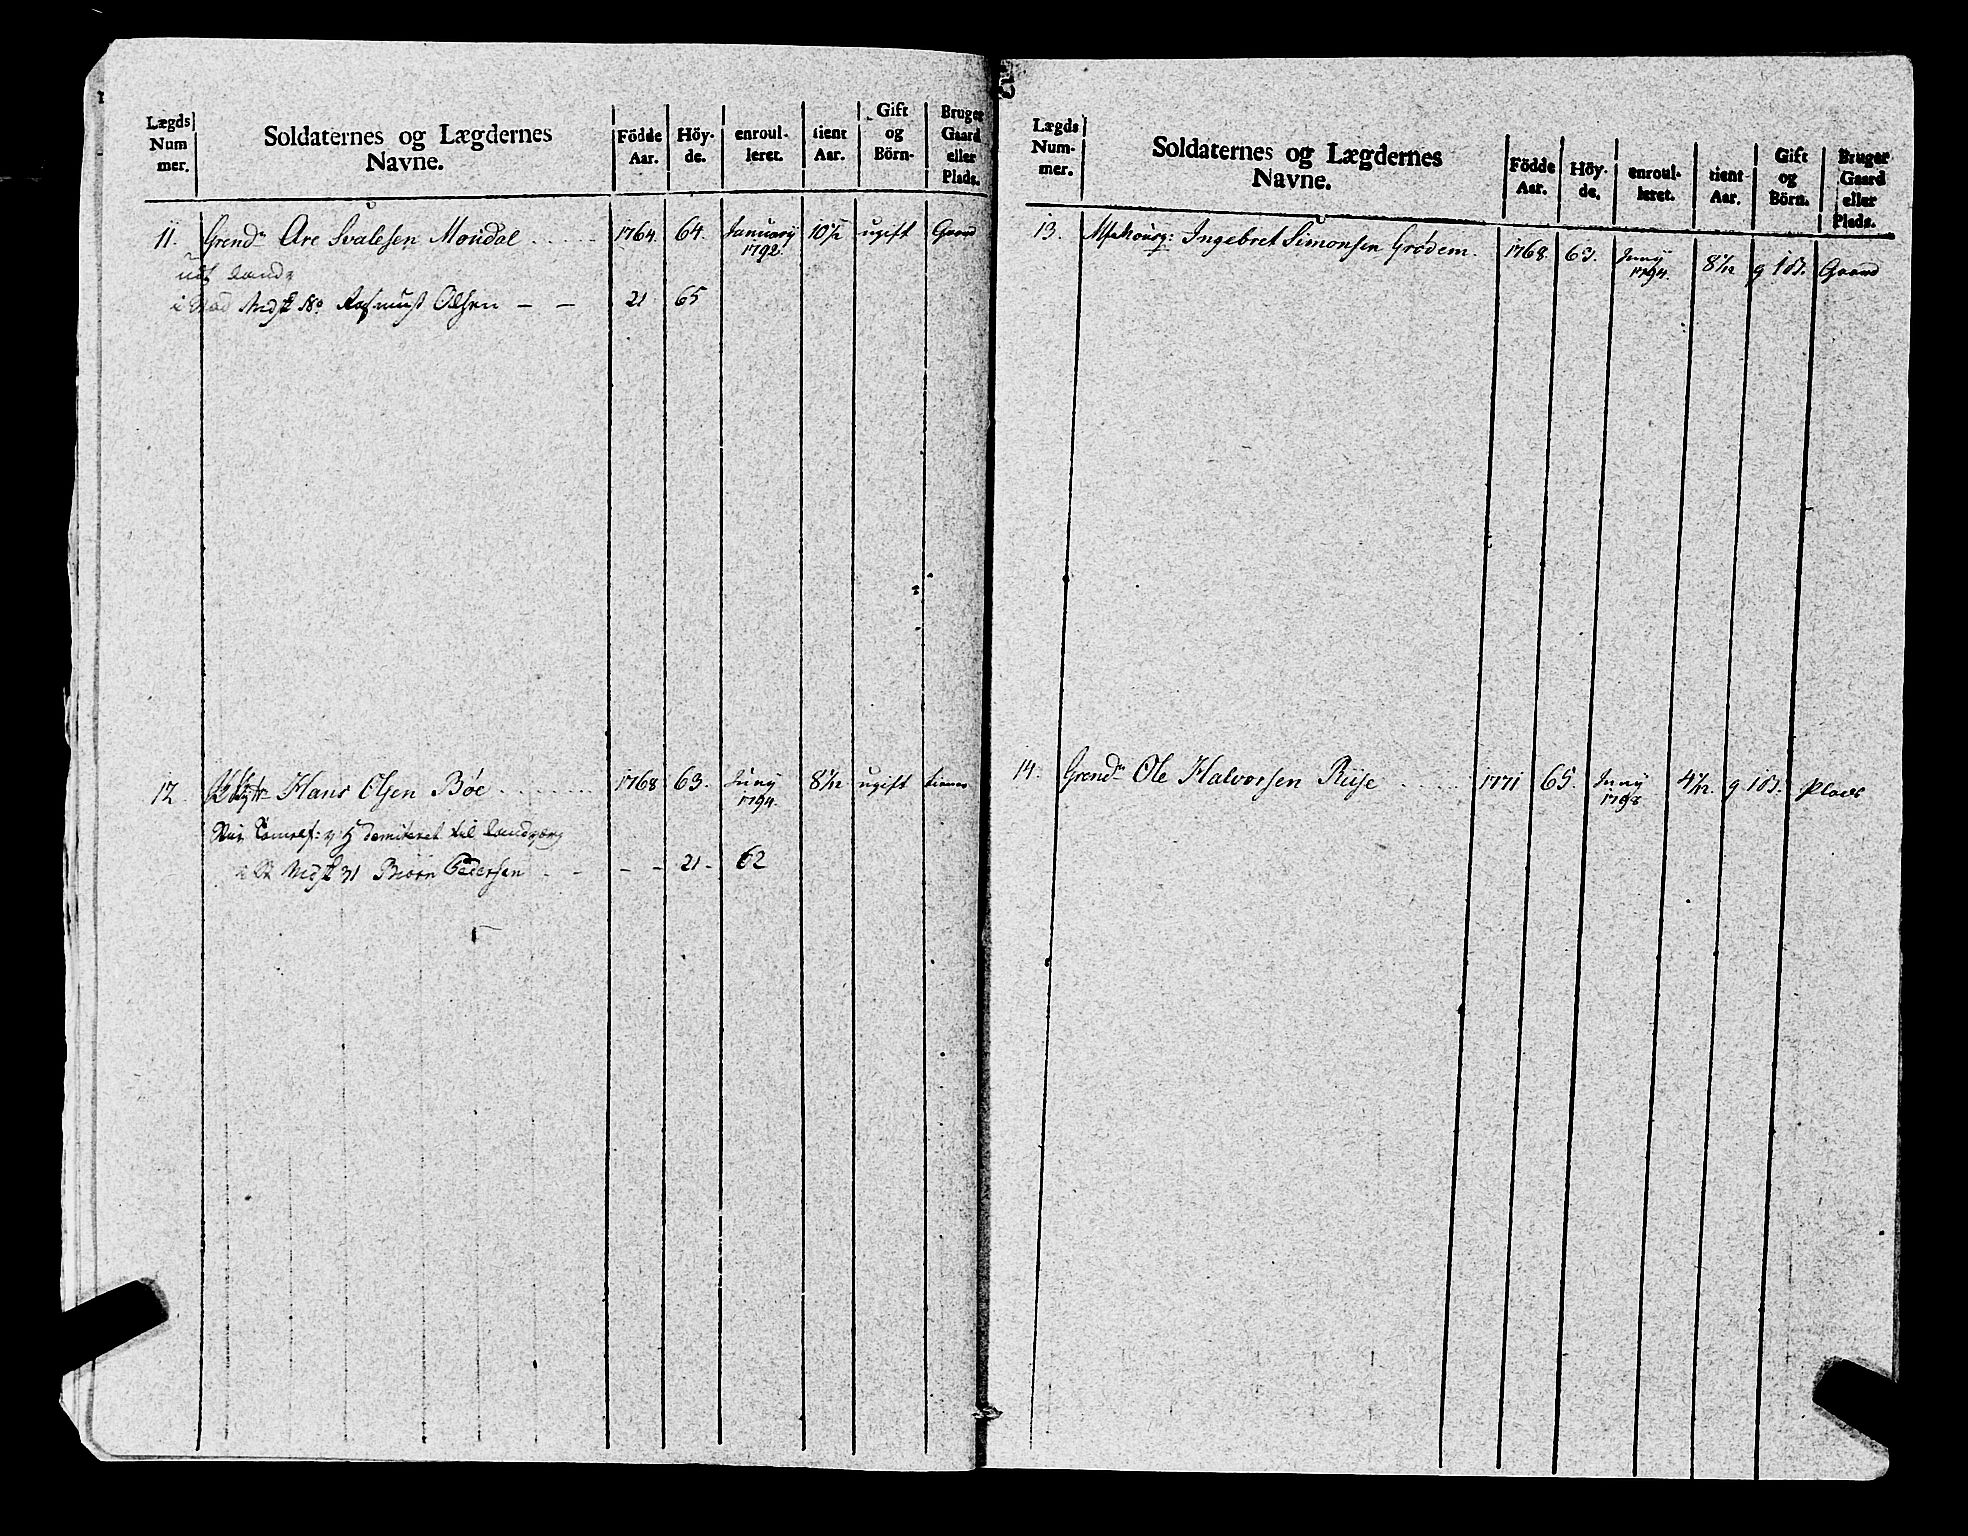 Lægds Num mer.
Soldaternes og Lægdernes Navne.
Födde Aar.
Höy- de.
enroul- leret.
tient Aar.
Gift og Börn-
Bruger Gaard eller Plads.
11. Grend.r Are Svalesen Mondal 1764. 64. January 1792. 10 1/2 ugift Gaard
Rasmus Olsen — — 21 65
12. Hans Olsen Böe 1768 63. Juny 1794. 8 1/12 ugift tiener
demiteret til Landværg
Biörn Pedersen - - - - 21 - 62
Lægds Num- mer.
Soldaternes og Lægdernes Navne.
Födde Aar.
Höy- de.
enroul- leret.
tient Aar.
Gift og Börn.
Bruger Gaard eller Plads.
13. Ingebret Simonsen Grödem. 1768 63. Juny 1794. 8 1/12 g 1 B. Gaard
14. Grend.r Ole Halvorsen Riise 1771 65. Juny 1798 4 1/12. g 1 B. Plads